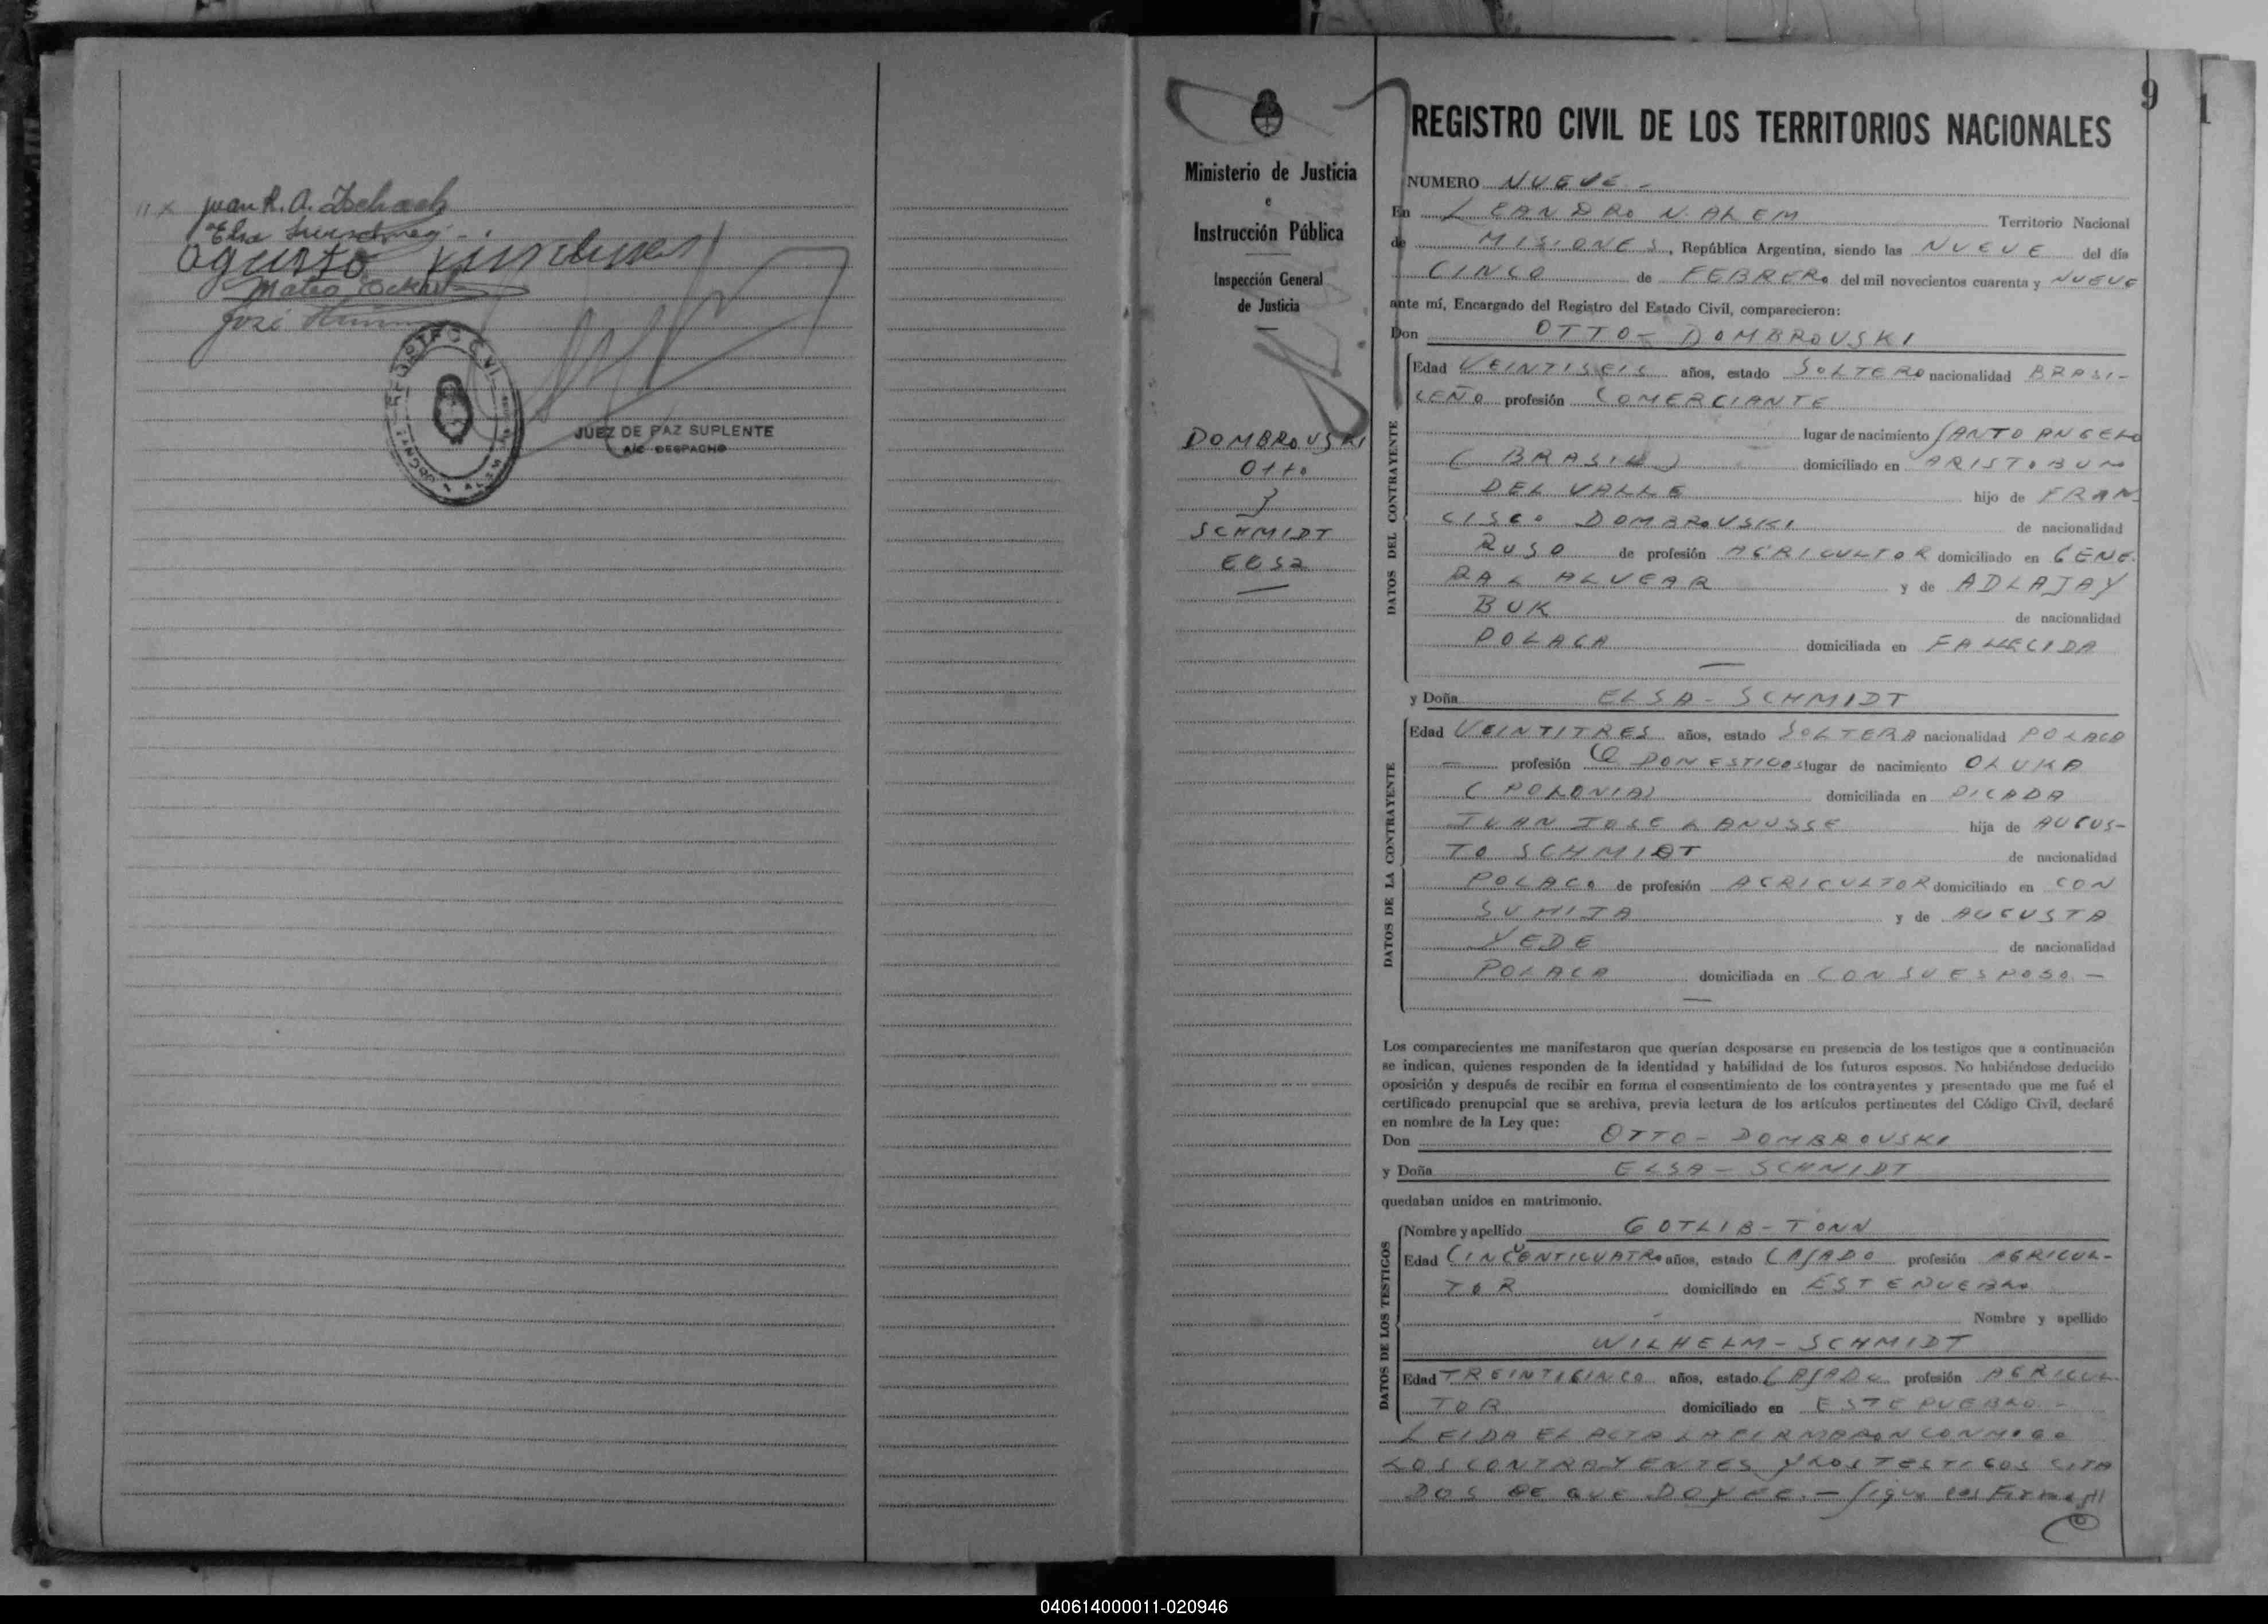 Juan R. A.
Elsa
Agusto
Mateo
José
REGISTRO CIVIL
JUEZ DE PAZ SUPLENTE
A/C DESPACHO
Ministerio de Justicia
e
Instrucción Pública
Inspección General
de Justicia
DOMBROVSKI
Otto
SCHMIDT
ELSA
9
REGISTRO CIVIL DE LOS TERRITORIOS NACIONALES
NUMERO NUEVE.-
En LEANDRO N. ALEM Territorio Nacional
de MISIONES, República Argentina, siendo las NUEVE del día
CINCO de FEBRERO del mil novecientos cuarenta y NUEVE
ante mí, Encargado del Registro del Estado Civil, comparecieron:
Don OTTO - DOMBROVSKI
DATOS DEL CONTRAYENTE
Edad VEINTISEIS años, estado SOLTERO nacionalidad BRASI-
LEÑO profesión COMERCIANTE
lugar de nacimiento SANTO ANGELO
(BRASIL) domiciliado en ARISTOBULO
DEL VALLE hijo de FRAN-
CISCO DOMBROVSKI de nacionalidad
RUSO de profesión AGRICULTOR domiciliado en GENE-
RAL ALVEAR y de ADLAJAY
BUK de nacionalidad
POLACA domiciliada en FALLECIDA
y Doña ELSA - SCHMIDT
DATOS DE LA CONTRAYENTE
Edad VEINTITRES años, estado SOLTERA nacionalidad POLACA
profesión Q DOMESTICOS lugar de nacimiento OLUKA
(POLONIA) domiciliada en PICADA
JUAN JOSE LANUSSE hija de AUGUS-
TO SCHMIDT de nacionalidad
POLACO de profesión AGRICULTOR domiciliado en CON
SU HIJA y de AUGUSTA
YEDE de nacionalidad
POLACA domiciliada en CON SU ESPOSO.-
Los comparecientes me manifestaron que querían desposarse en presencia de los testigos que a continuación
se indican, quienes responden de la identidad y habilidad de los futuros esposos. No habiéndose deducido
oposición y después de recibir en forma el consentimiento de los contrayentes y presentado que me fué el
certificado prenupcial que se archiva, previa lectura de los artículos pertinentes del Código Civil, declaré
en nombre de la Ley que:
Don OTTO - DOMBROVSKI
y Doña ELSA - SCHMIDT
quedaban unidos en matrimonio.
DATOS DE LOS TESTIGOS
Nombre y apellido GOTLIB - TONN
Edad CINCUENTICUATRO años, estado CASADO profesión AGRICUL-
TOR domiciliado en ESTE PUEBLO
Nombre y apellido
WILHELM - SCHMIDT
Edad TREINTICINCO años, estado CASADO profesión AGRICUL
TOR domiciliado en ESTE PUEBLO.-
LEIDA EL ACTA LA FIRMARON CONMIGO
LOS CONTRAYENTES Y LOS TESTIGOS CITA
DOS DE QUE DOY FE.- Sigue las Firmas//
040614000011-020946